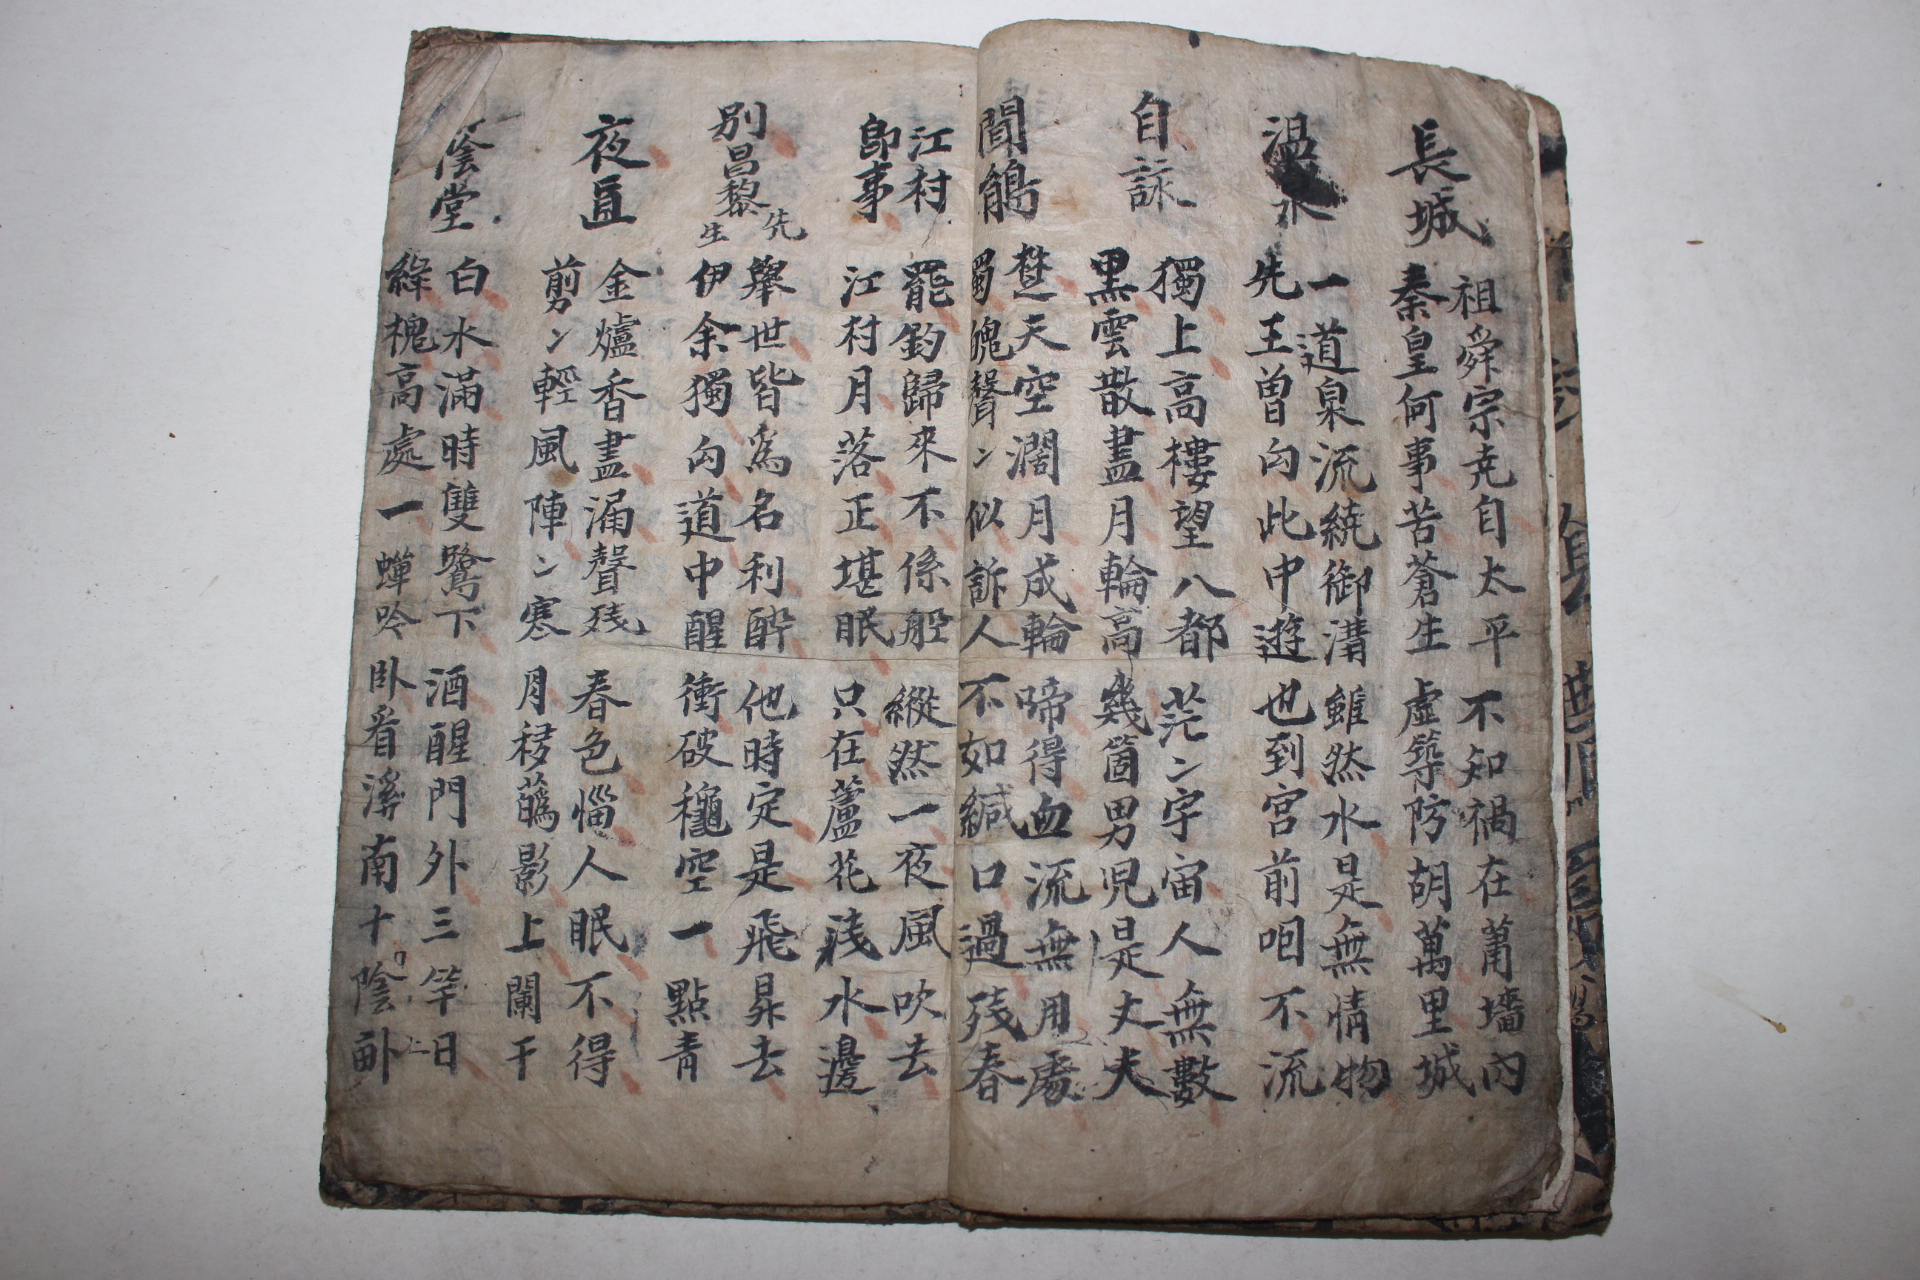 長城
祖舜宗尭自太平 不知禍在蕭墻內
秦皇何事苦蒼生 虛築防胡萬里城
温水
一道泉流繞御溝 雖然水是無情物
先王曽向此中遊 也到宮前咽不流
自詠
獨上高樓望八都 茫〻宇宙人無數
黒雲散盡月輪高 幾箇男児是丈夫
聞鵑
楚天空濶月成輪 啼得血流無用處
蜀魄聲〻似訴人 不如緘口過残春
江村即事
罷釣歸來不係舩 縱然一夜風吹去
江村月落正堪眠 只在蘆花浅水邊
別昌黎先生
舉世皆為名利酔 他時定是飛昇去
伊余獨向道中醒 衝破穐空一點青
夜直
金爐香盡漏聲残 春色惱人眠不得
剪〻輕風陣〻寒 月移蘤影上闌干
陰堂
白水滿時雙鷺下 酒醒門外三竿日
綠槐高處一蟬吟 卧看溪南十陰畝